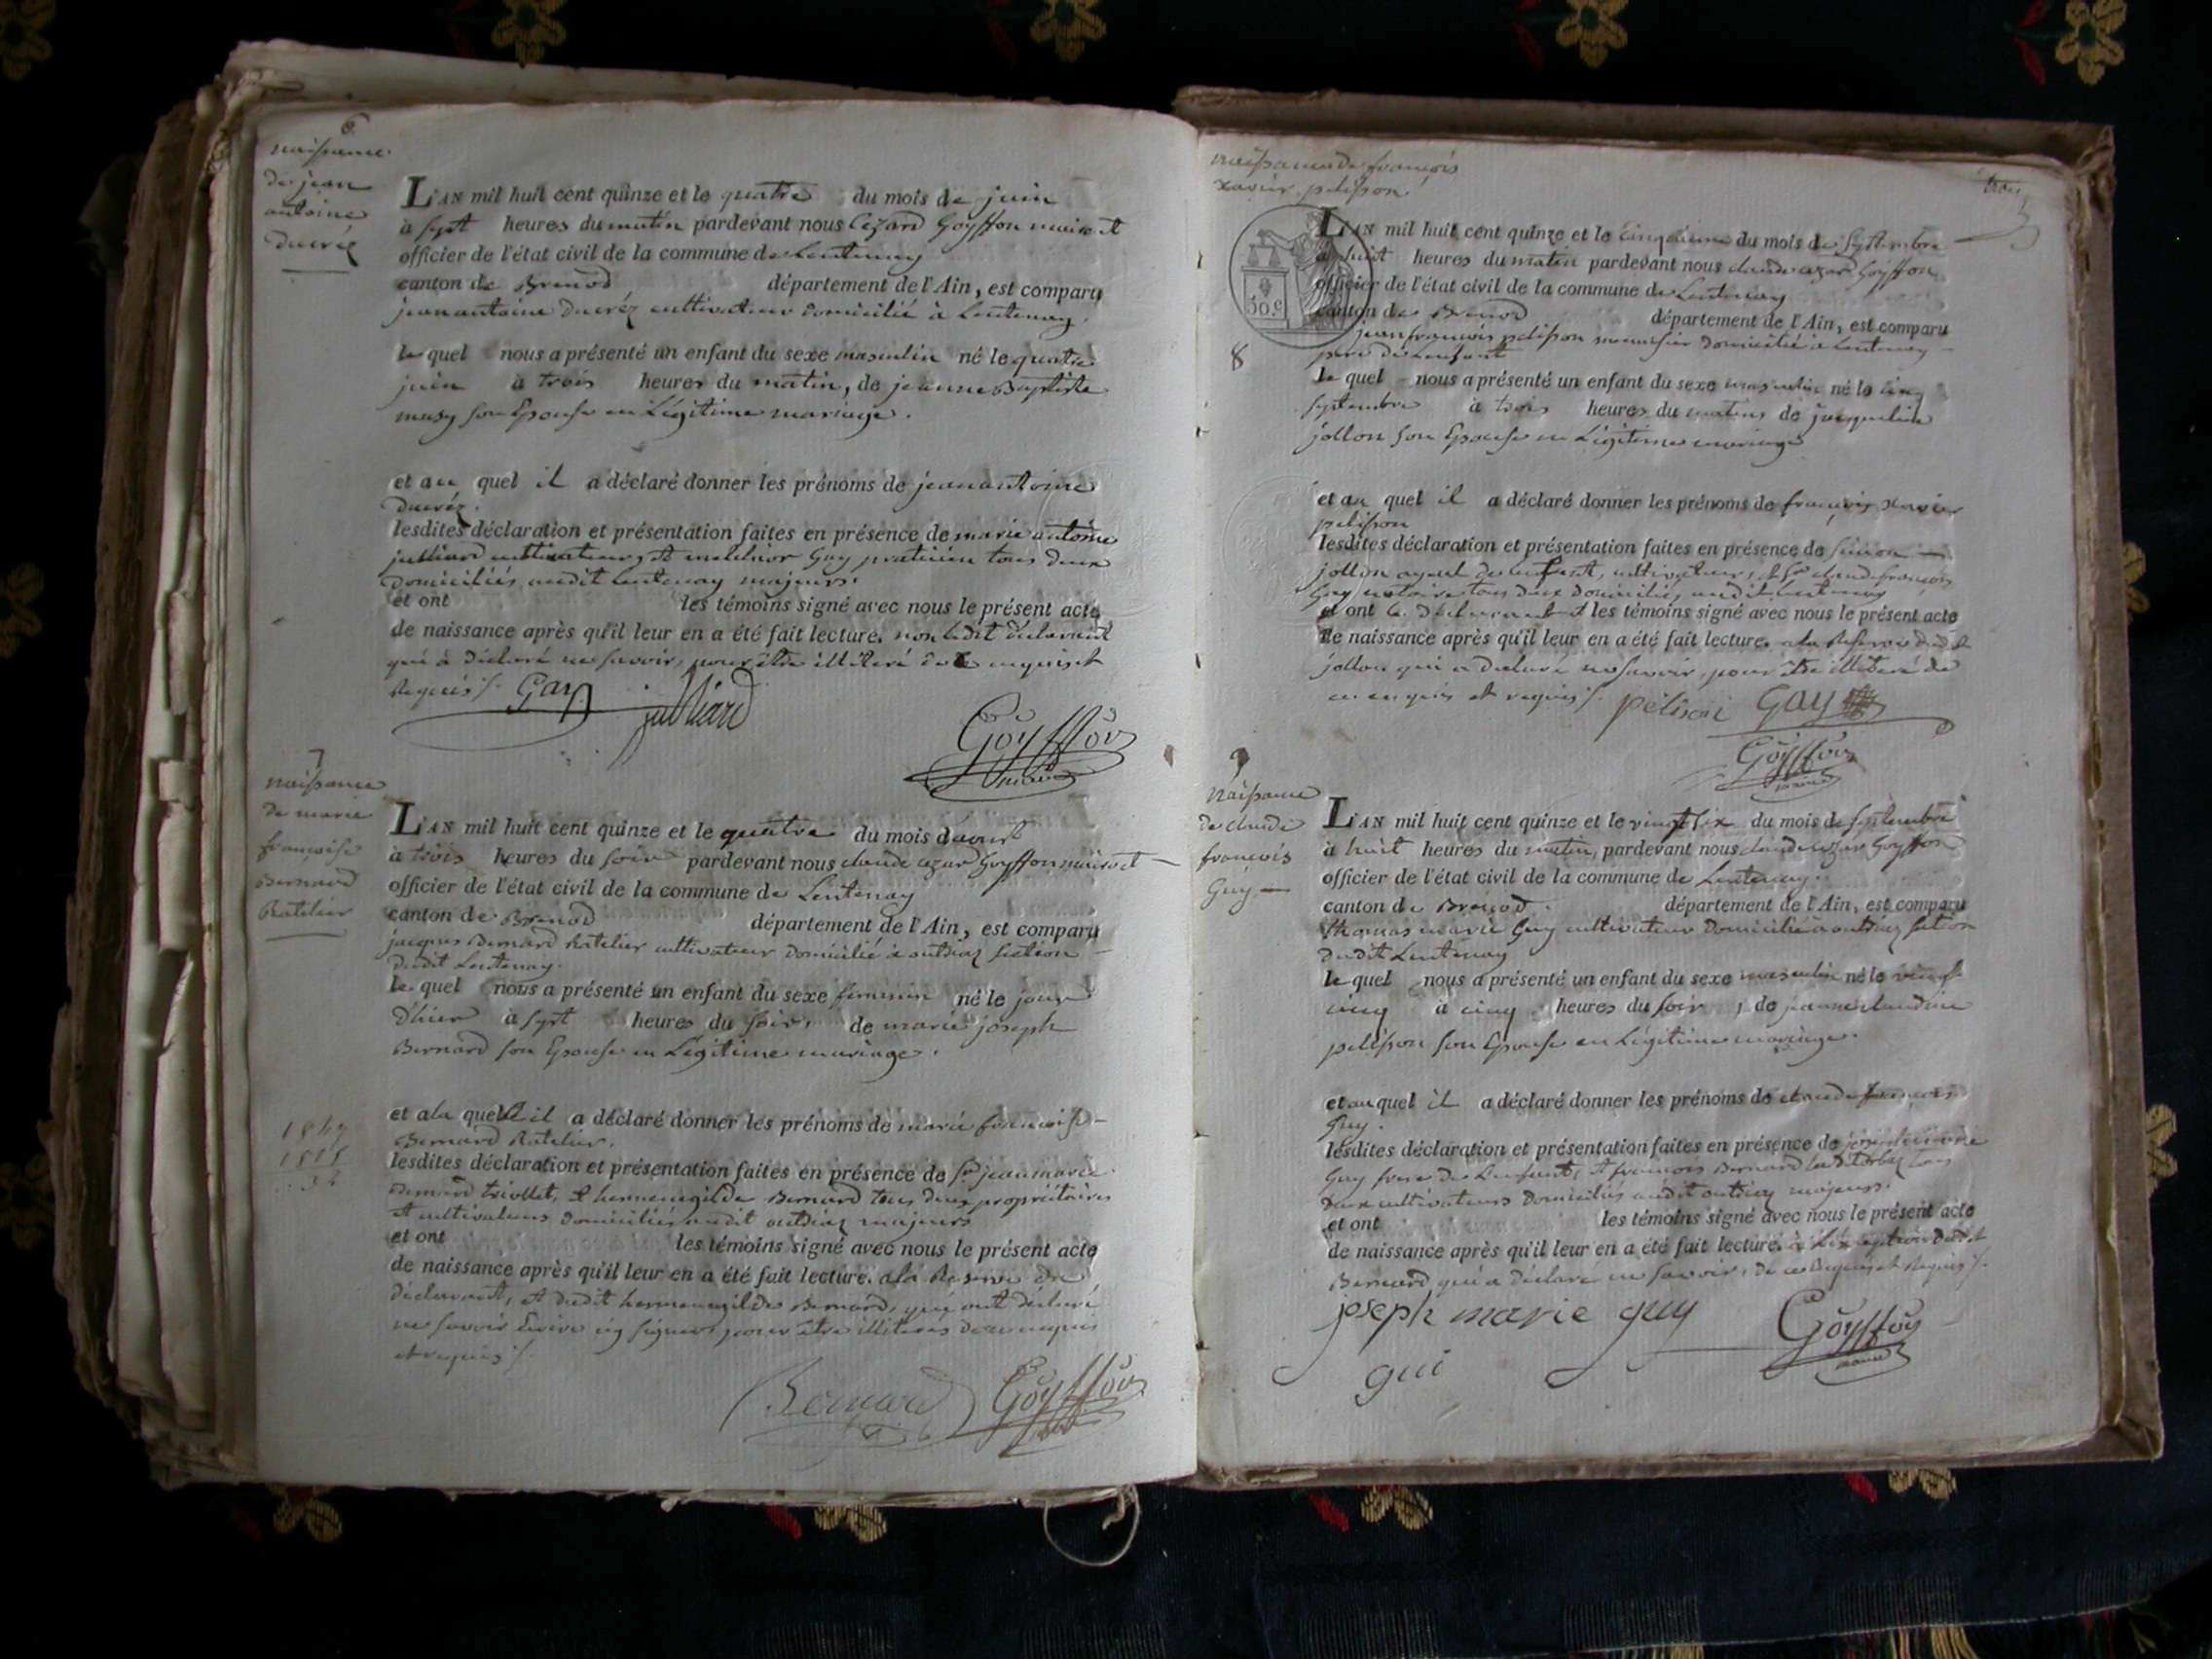 6.
naissance
de jean
antoine
ducréz
L'AN mil huit cent quinze et le quatre du mois de juin
à sept heures du matin pardevant nous Cézard Goyffon maire et
officier de l'état civil de la commune de Lentenay
canton de Brenod département de l'Ain, est comparu
jean antoine Ducréz cultivateur domicilié à Lentenay.
le quel nous a présenté un enfant du sexe masculin né le quatre
juin à trois heures du matin, de jeanne Baptiste
masy son Epouse en Légitime mariage.
et au quel il a déclaré donner les prénoms de jean antoine
ducréz.
lesdites déclaration et présentation faites en présence de marie antoine
julliard cultivateur, et melchior Guy praticien tous deux
domiciliés audit Lentenay majeurs.
et ont les témoins signé avec nous le présent acte
de naissance après qu'il leur en a été fait lecture. non ledit déclarant
qui à déclaré ne savoir, pour être illitéré de ce enquis et
Requis /.
julliard Goyffon
maire
7
naissance
de marie
françoise
Bernard
Ratelier
L'AN mil huit cent quinze et le quatre du mois d'aoust
à trois heures du soir pardevant nous claude cezar Goyffon maire et
officier de l'état civil de la commune de Lentenay
canton de Brenod département de l'Ain, est comparu
jacques Bernard Ratelier cultivateur domicilié à outriaz section
dudit Lentenay.
le quel nous a présenté un enfant du sexe féminin né le jour
d'hier à sept heures du soir, de marie joseph
Bernard son Epouse en Légitime mariage.
et a la quelle il a déclaré donner les prénoms de marie françoise
Bernard Ratelier.
1849
1815
34
lesdites déclaration et présentation faites en présence de Sr jean marie
Bernard triollet, et hermenegilde Bernard tous deux propriétaires
et cultivateurs domiciliés audit outriaz majeurs
et ont les témoins signé avec nous le présent acte
de naissance après qu'il leur en a été fait lecture. a la Reserve du
déclarant, et dudit hermenegilde Bernard, qui ont déclaré
ne savoir Ecrire ny signer, pour être illitérés de ce enquis
et requis /.
Bernard Goyffon
naissance de françois
xavier pelisson
trois
50 C
8
L'AN mil huit cent quinze et le cinquième du mois de septembre
à huit heures du matin pardevant nous claude cezar Goyffon
officier de l'état civil de la commune de Lentenay
canton de Brenod département de l'Ain, est comparu
jean françois pelisson menuisier domicilié à Lentenay
père de L'enfant
le quel nous a présenté un enfant du sexe masculin né le cinq
septembre à trois heures du matin, de jacqueline
jollon son Epouse en Légitime mariage
et au quel il a déclaré donner les prénoms de françois xavier
pelisson
lesdites déclaration et présentation faites en présence de simon
jollon ayeul de l'enfant, cultivateur, et Sr claude françois
Guy notaire tous deux domiciliés audit Lentenay
et ont le déclarant et les témoins signé avec nous le présent acte
de naissance après qu'il leur en a été fait lecture. a la Reserve dudit
jollon qui a déclaré ne savoir, pour être illitéré de
ce enquis et requis /. pelison GAY
Goyffon
maire
9
naissance
de claude
françois
Guy
L'AN mil huit cent quinze et le vingt six du mois de septembre
à huit heures du matin, pardevant nous claude cezar Goyffon
officier de l'état civil de la commune de Lentenay.
canton de Brenod. département de l'Ain, est comparu
thomas marie Guy cultivateur domicilié à outriaz section
dudit Lentenay
le quel nous a présenté un enfant du sexe masculin né le vingt
cinq à cinq heures du soir, de jeanne claudine
pelisson son Epouse en Légitime mariage.
et au quel il a déclaré donner les prénoms de claude françois
Guy.
lesdites déclaration et présentation faites en présence de joseph marie
Guy frere de L'enfant, et françois Bernard tous
deux cultivateurs domiciliés audit outriaz majeurs.
et ont les témoins signé avec nous le présent acte
de naissance après qu'il leur en a été fait lecture. à L'exception dudit
Bernard qui a déclaré ne savoir, de ce Enquis et Requis /.
joseph marie guy Goyffon
gui maire